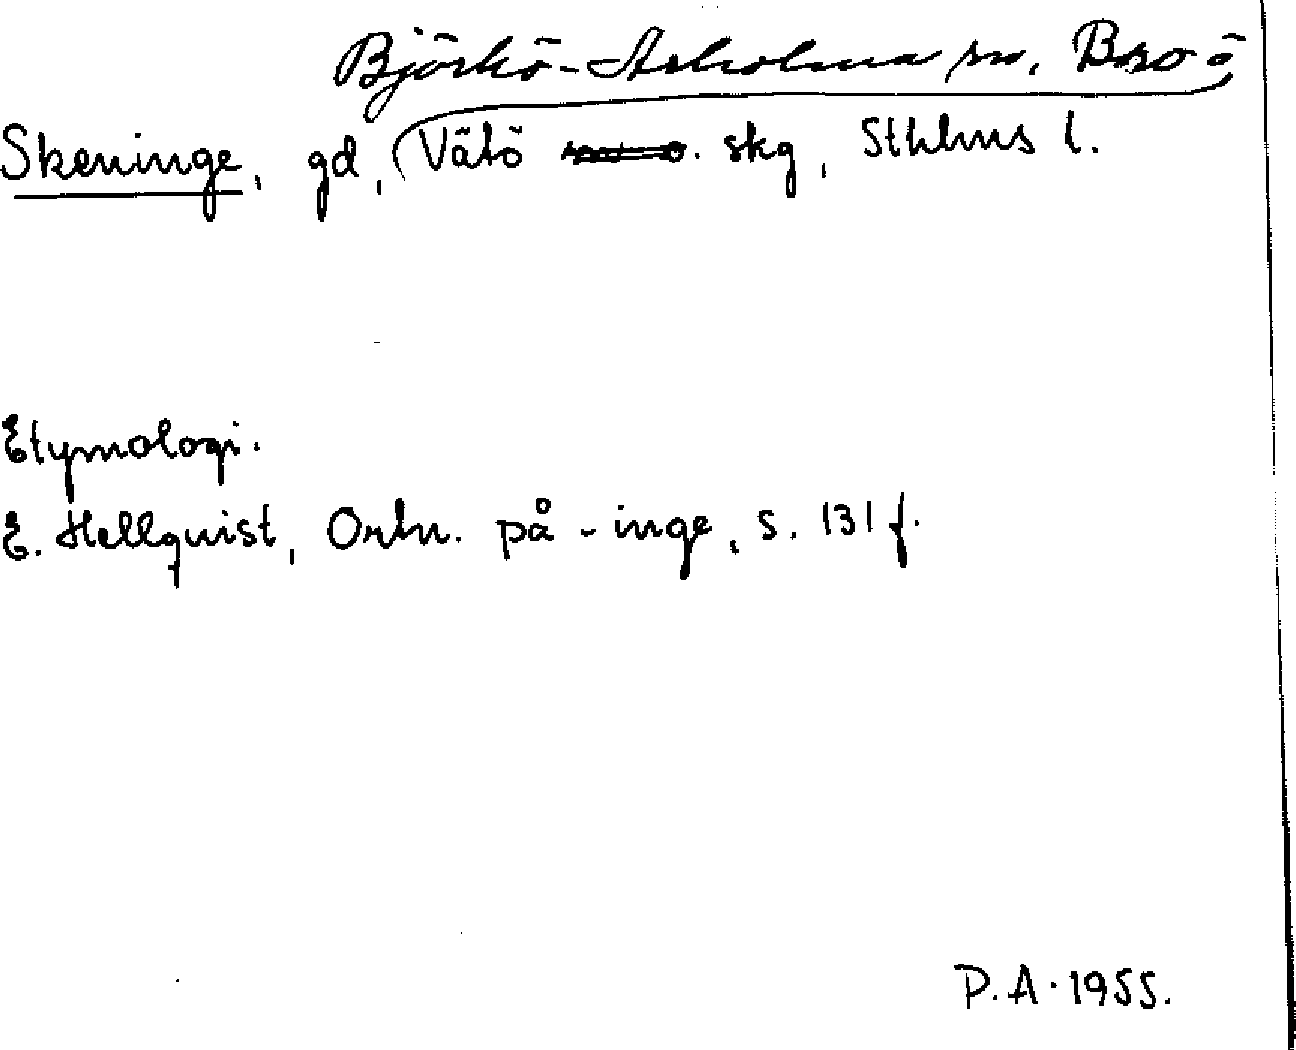 Björkö-Arholma sn, Bro o
Skeninge, gd, Vätö skg, Sthlms l.
Etymologi.
E. Hellquist, Ortn. på -inge, s. 131 f.
P.A. 1955.